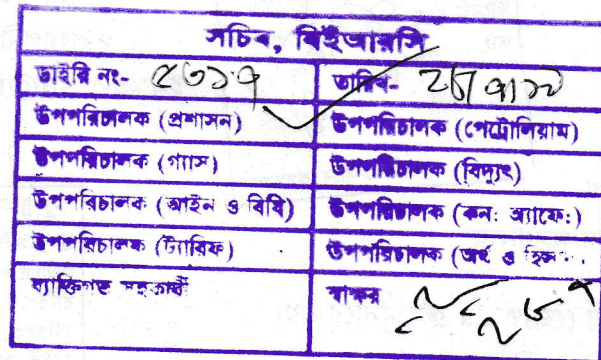 সচিব, বিইআরসি
ডাইরি নং- ৫৩১৭ তারিখ-
উপপরিচালক (প্রশাসন) উপপরিচালক (পেট্রোলিয়াম)
উপপরিচালক (গ্যাস) উপপরিচালক (বিদ্যুৎ)
উপপরিচালক (আইন ও বিধি) উপপরিচালক (কন: অ্যাফে:)
উপপরিচালক (ট্যারিফ) উপপরিচালক (অর্থ ও
ব্যক্তিগত স্বাক্ষর